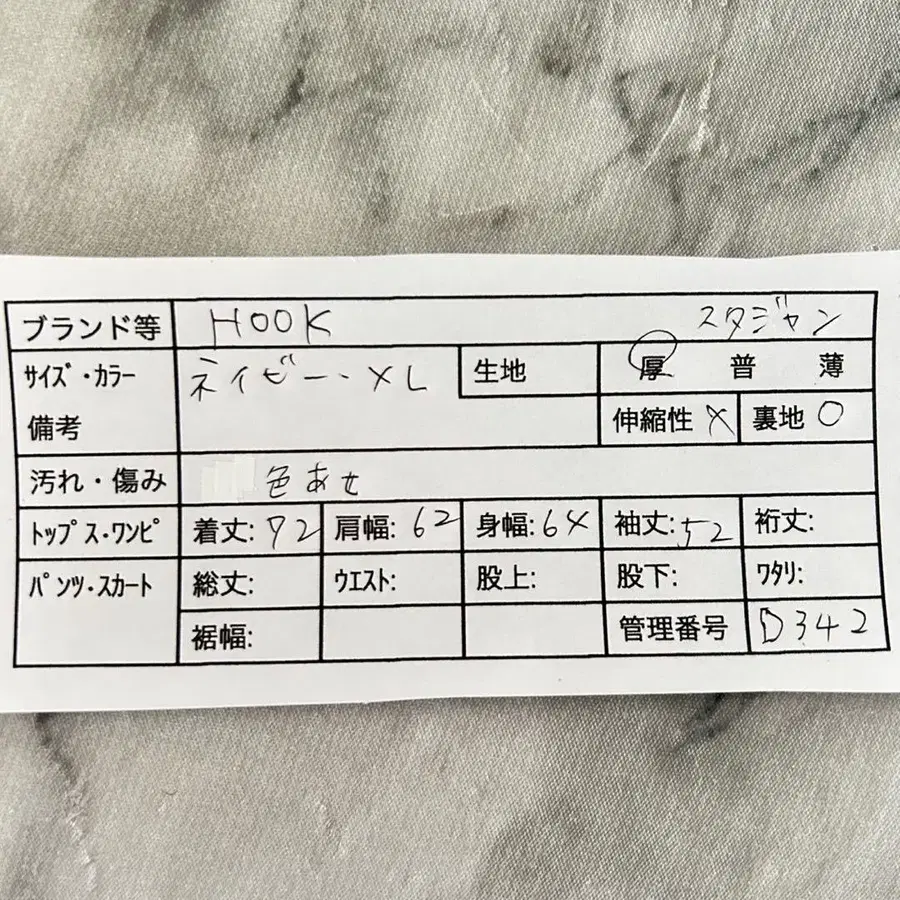 ブランド等 HOOK スタジャン
サイズ・カラー ネイビー・XL 生地 厚 普 薄
備考 伸縮性 X 裏地 ○
汚れ・傷み 色あせ
トップス・ワンピ 着丈: 72 肩幅: 62 身幅: 64 袖丈: 52 裄丈:
パンツ・スカート 総丈: ウエスト: 股上: 股下: ワタリ:
裾幅: 管理番号 D342